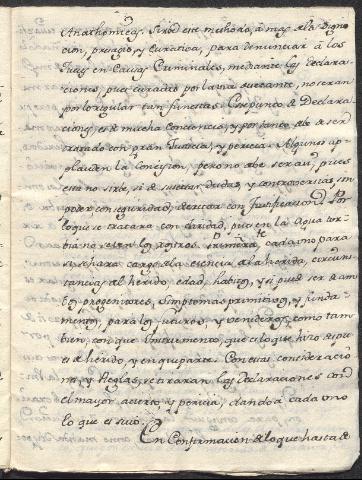 Anathomicas. Sirbe este methodo, a mas de la Digno
cion, presagio, y Curativa, para denunciar à los
Jueces en Causas Criminales, mediante las Declara-
ciones, que executado por la via siguiente, no seran
por lo regular tan funestas. El punto de Declara
ciones, es de mucha Conciencia, y por tanto debe de ser
tratado con gran Justicia, y pericia. Algunos ap-
plauden la Concision, pero no debe ser asi, pues
esta no sirbe, si de suscitar dudas, y controversias sin
poder con seguridad, deducir con justificacion. Por
lo que se tratara con claridad, pues en la Agua tur-
bia no se ven los rostros. primera, cada uno para
si, se hara cargo de la esencia de la herida, circuns
tancias del herido, edad, habito, y si pued ser de am
bos progenitores, Symptomas primitivos, y funda-
mento, para los futuros, y venideros; como tam
bien, con que Ynstrumento, que es lo que hizo despu
es el herido, y en que parte. Con estas consideracio
nes, y Reglas, se tiraran las Declaraciones con
el mayor acierto, y pericia, dando à cada uno
lo que es suio.
En Confirmacion de lo que hasta de